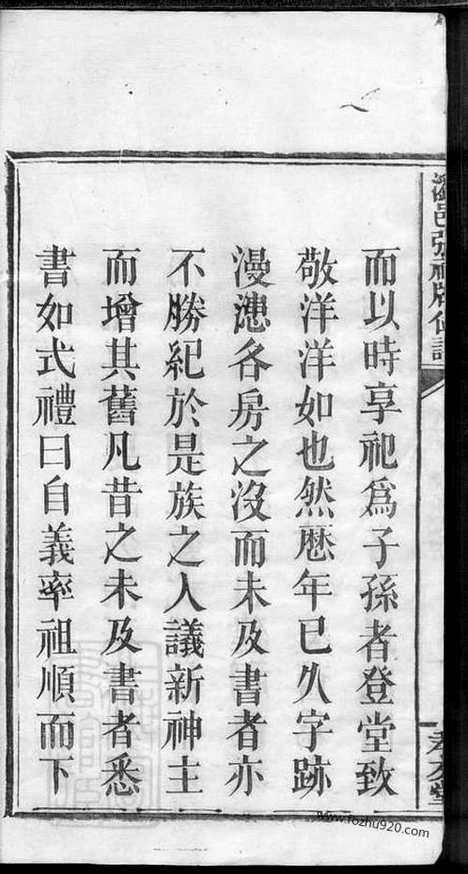 而以時享祀爲子孫者登堂致
敬洋洋如也然厯年已久字跡
漫漶各房之沒而未及書者亦
不勝紀於是族之人議新神主
而增其舊凡昔之未及書者悉
書如式禮曰自義率祖順而下
www.fozhu920.com